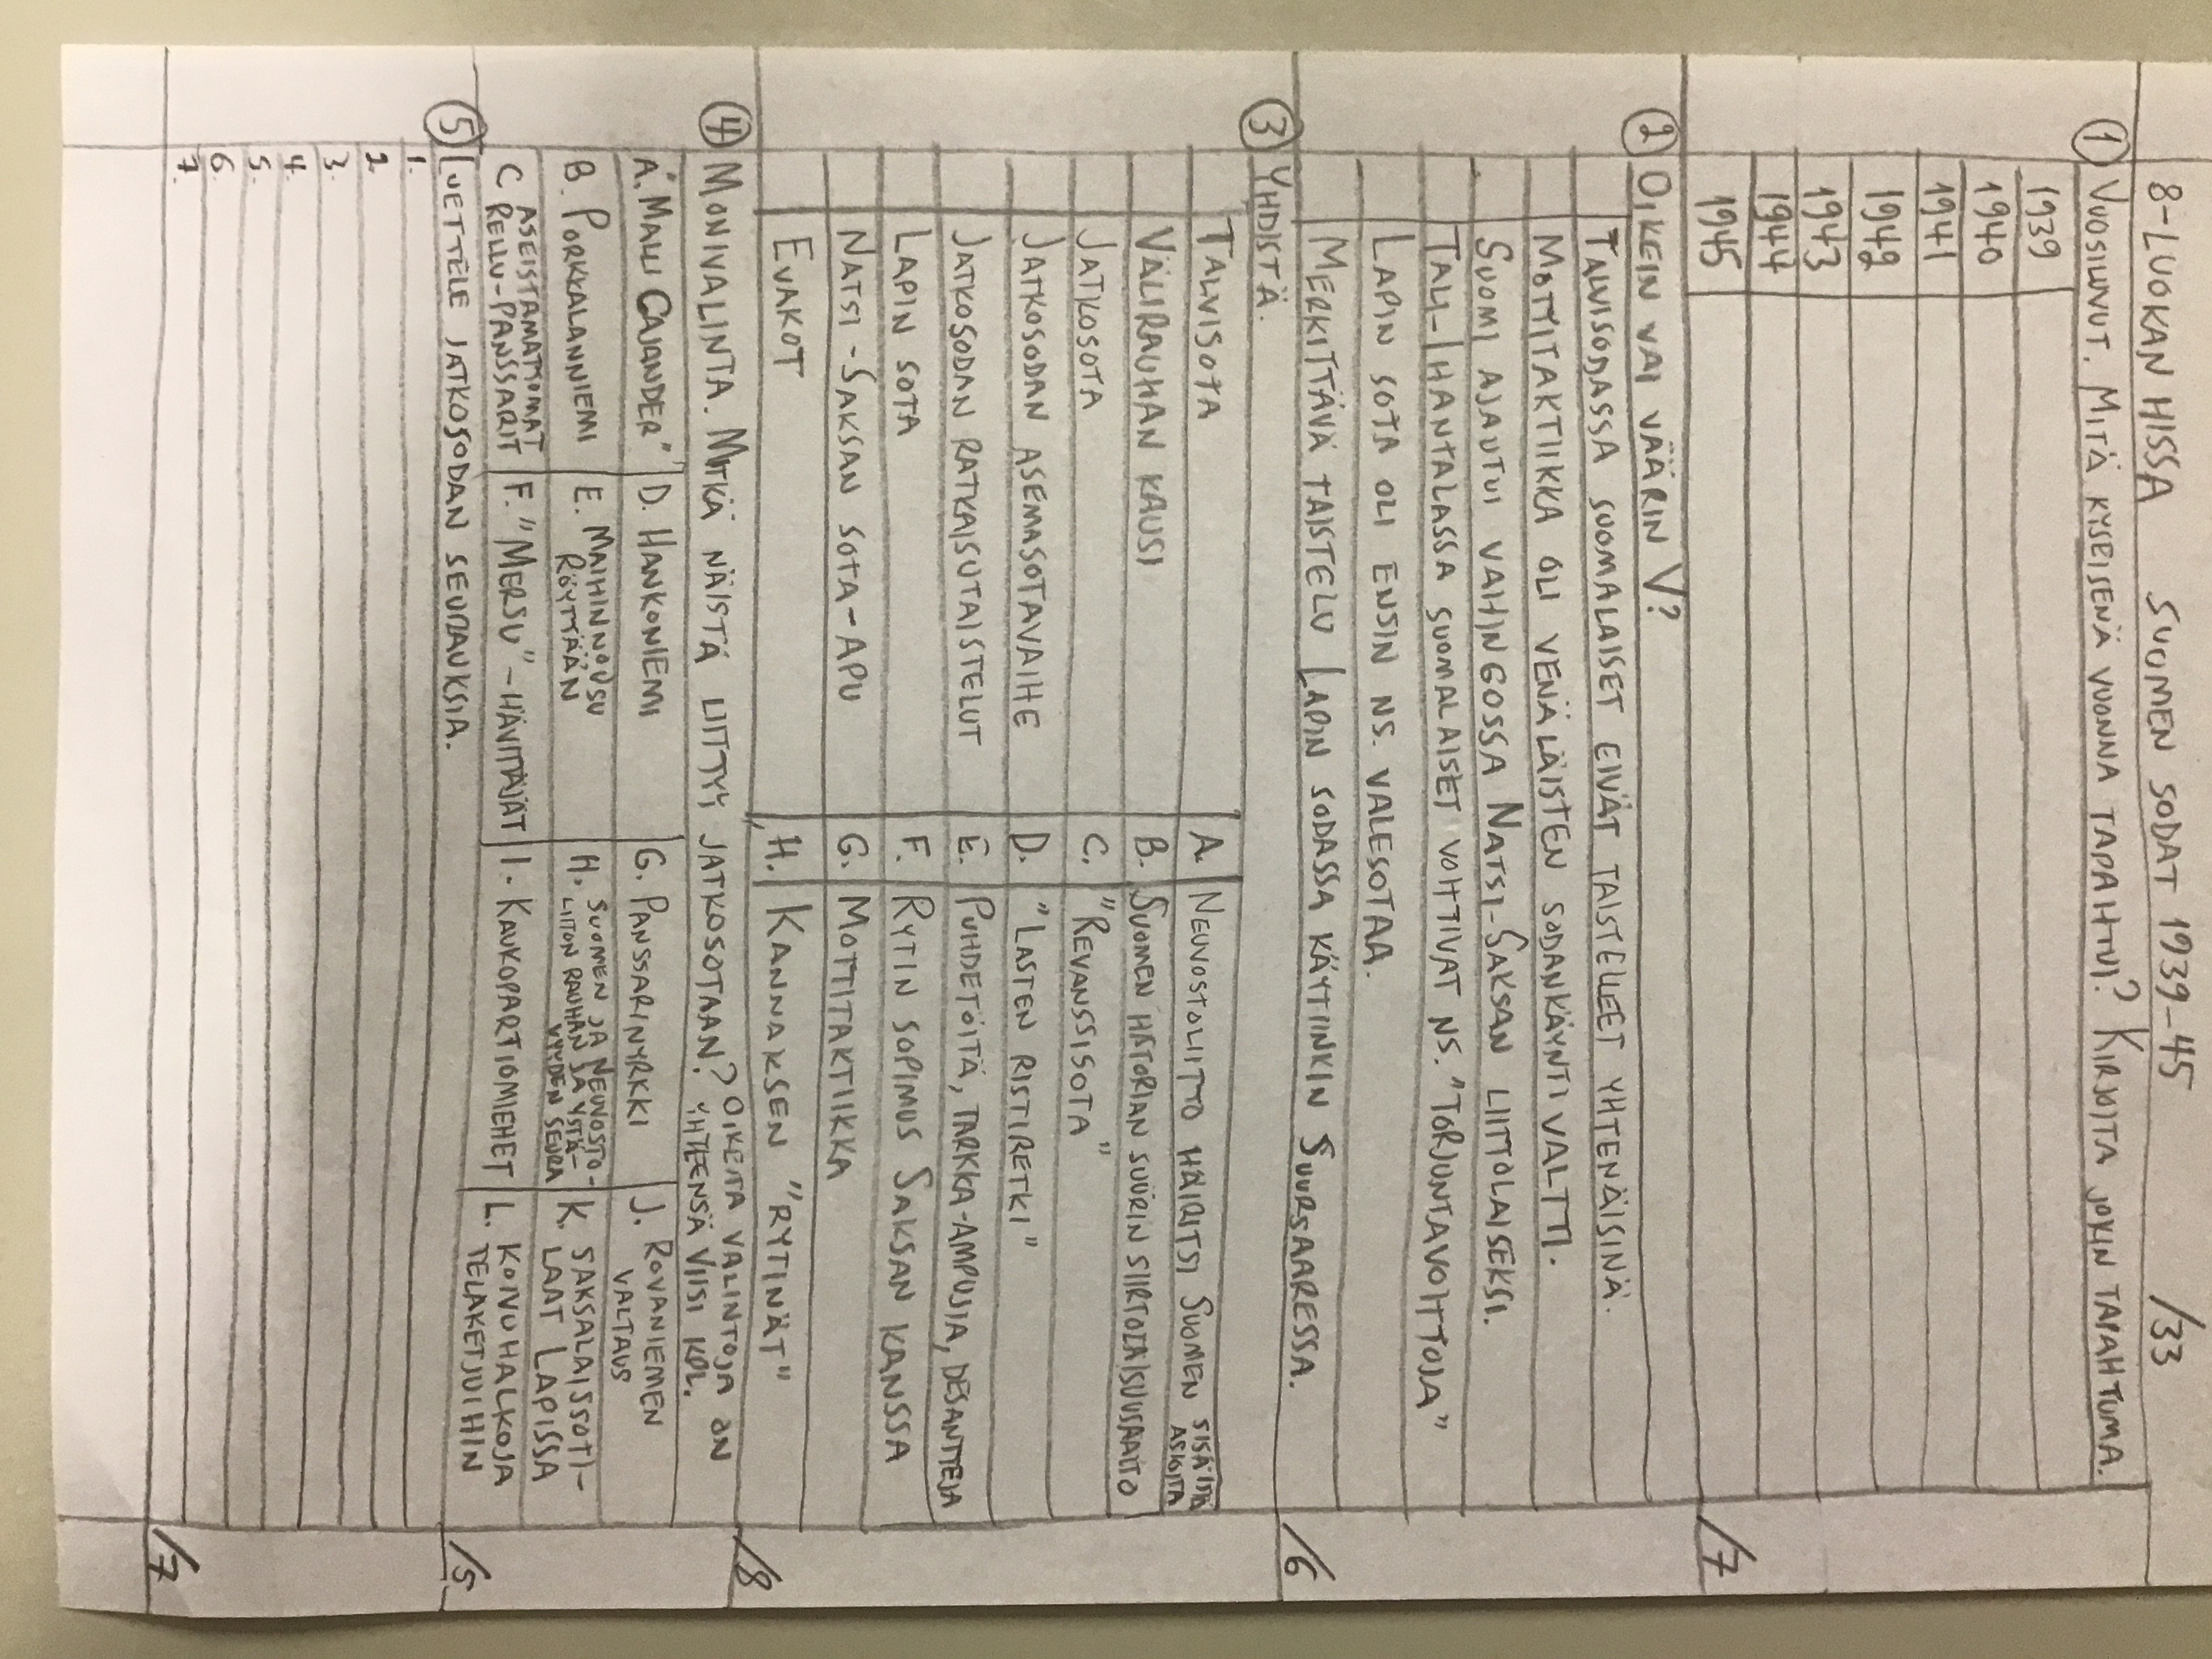 8-LUOKAN HISSA SUOMEN SODAT 1939-45 /33
① VUOSILUVUT. MITÄ KYSEISENÄ VUONNA TAPAHTUI? KIRJOITA JOKIN TAPAHTUMA.
1939
1940
1941
1942
1943
1944
1945
/7
② OIKEIN VAI VÄÄRIN V?
TALVISODASSA SUOMALAISET EIVÄT TAISTELLEET YHTENÄISINÄ.
MOTTITAKTIIKKA OLI VENÄLÄISTEN SODANKÄYNTIVALTTI.
SUOMI AJAUTUI VAHINGOSSA NATSI-SAKSAN LIITTOLAISEKSI.
TALI-IHANTALASSA SUOMALAISET VOITTIVAT NS. "TORJUNTAVOITTOJA"
LAPIN SOTA OLI ENSIN NS. VALESOTAA.
MERKITTÄVÄ TAISTELU LAPIN SODASSA KÄYTIINKIN SUURSAARESSA.
/6
③ YHDISTÄ.
TALVISOTA A. NEUVOSTOLIITTO HÄIRITSI SUOMEN SISÄISIÄ ASIOITA
VÄLIRAUHAN KAUSI B. SUOMEN HISTORIAN SUURIN SIIRTOLAISUUSAALTO
JATKOSOTA C. "REVANSSISOTA"
JATKOSODAN ASEMASOTAVAIHE D. "LASTEN RISTIRETKI"
JATKOSODAN RATKAISUTAISTELUT E. PUHDETÖITÄ, TARKKA-AMPUJIA, DESANTTEJA
LAPIN SOTA F. RYTIN SOPIMUS SAKSAN KANSSA
NATSI-SAKSAN SOTA-APU G. MOTTITAKTIIKKA
EVAKOT H. KANNAKSEN "RYTINÄT"
/8
④ MONIVALINTA. MITKÄ NÄISTÄ LIITTYY JATKOSOTAAN? OIKEITA VALINTOJA ON
YHTEENSÄ VIISI KPL.
A. "MALLI CAJANDER" D. HANKONIEMI G. PANSSARINYRKKI J. ROVANIEMEN
VALTAUS
B. PORKKALANNIEMI E. MAIHINNOUSU
RÖYTTÄÄN
H. SUOMEN JA NEUVOSTO-
LIITON RAUHAN JA YSTÄ-
VYYDEN SEURA
K. SAKSALAISSOTI-
LAAT LAPISSA
C. ASEISTAMATTOMAT
RELLU-PANSSARIT
F. "MERSU"-HÄVITTÄJÄT I. KAUKOPARTIOMIEHET L. KOIVUHALKOJA
TELAKETJUIHIN
/5
⑤ LUETTELE JATKOSODAN SEURAUKSIA.
1.
2
3.
4.
5.
6.
7.
/7